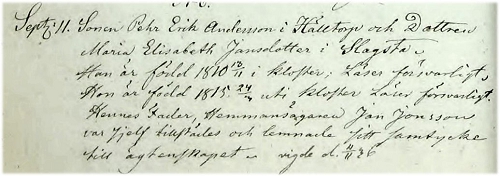 Septr. 11. Sonen Pehr Erik Andersson i Källtorp och Dottren
Maria Elisabeth Jansdotter i Slagsta.
Han är född 1810 18/11 i kloster; Läser försvarligt.
Hon är född 1815 24/7 uti kloster Läser försvarligt.
Hennes Fader, Hemmansägaren Jan Jonsson
var sjelf tillstädes och lemnade sitt samtycke
till ägtenskapet. vigde d. 4/11 36